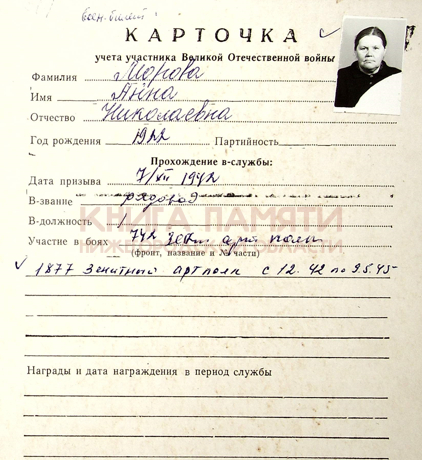 воен. билет
КАРТОЧКА
учета участника Великой Отечественной войны
Фамилия Морова
Имя Анна
Отчество Николаевна
Год рождения 1922 Партийность.
Прохождение в-службы:
Дата призыва 7/XII 1942
В-звание рядовой
В-должность
Участие в боях 742 зенит. арт полк
(фронт, название и № части)
КНИГА ПАМЯТИ
НИЖЕГОРОДСКОЙ ОБЛАСТИ
1877 Зенитный артполк с 12.42 по 9.5.45
Награды и дата награждения в период службы